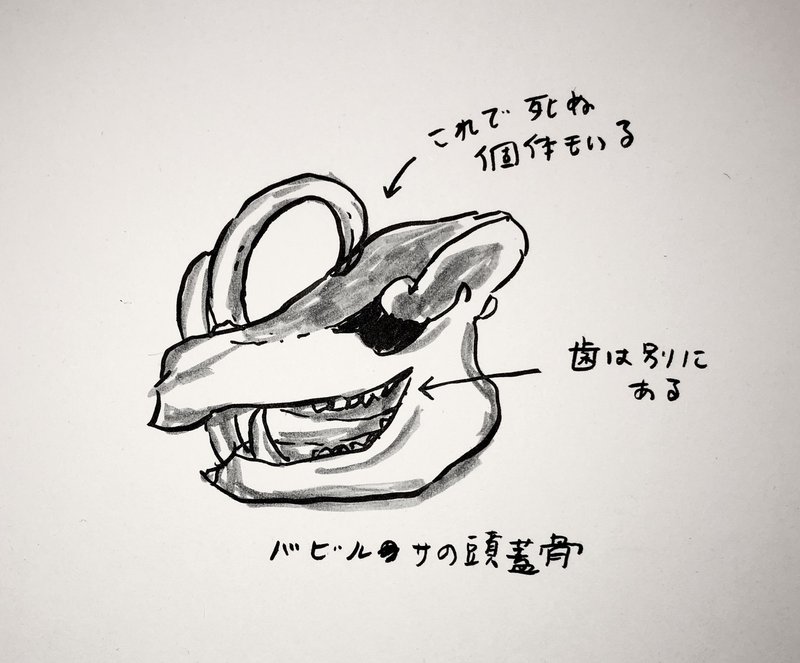 これで死ぬ
個体もいる
歯は別に
ある
バビルサの頭蓋骨